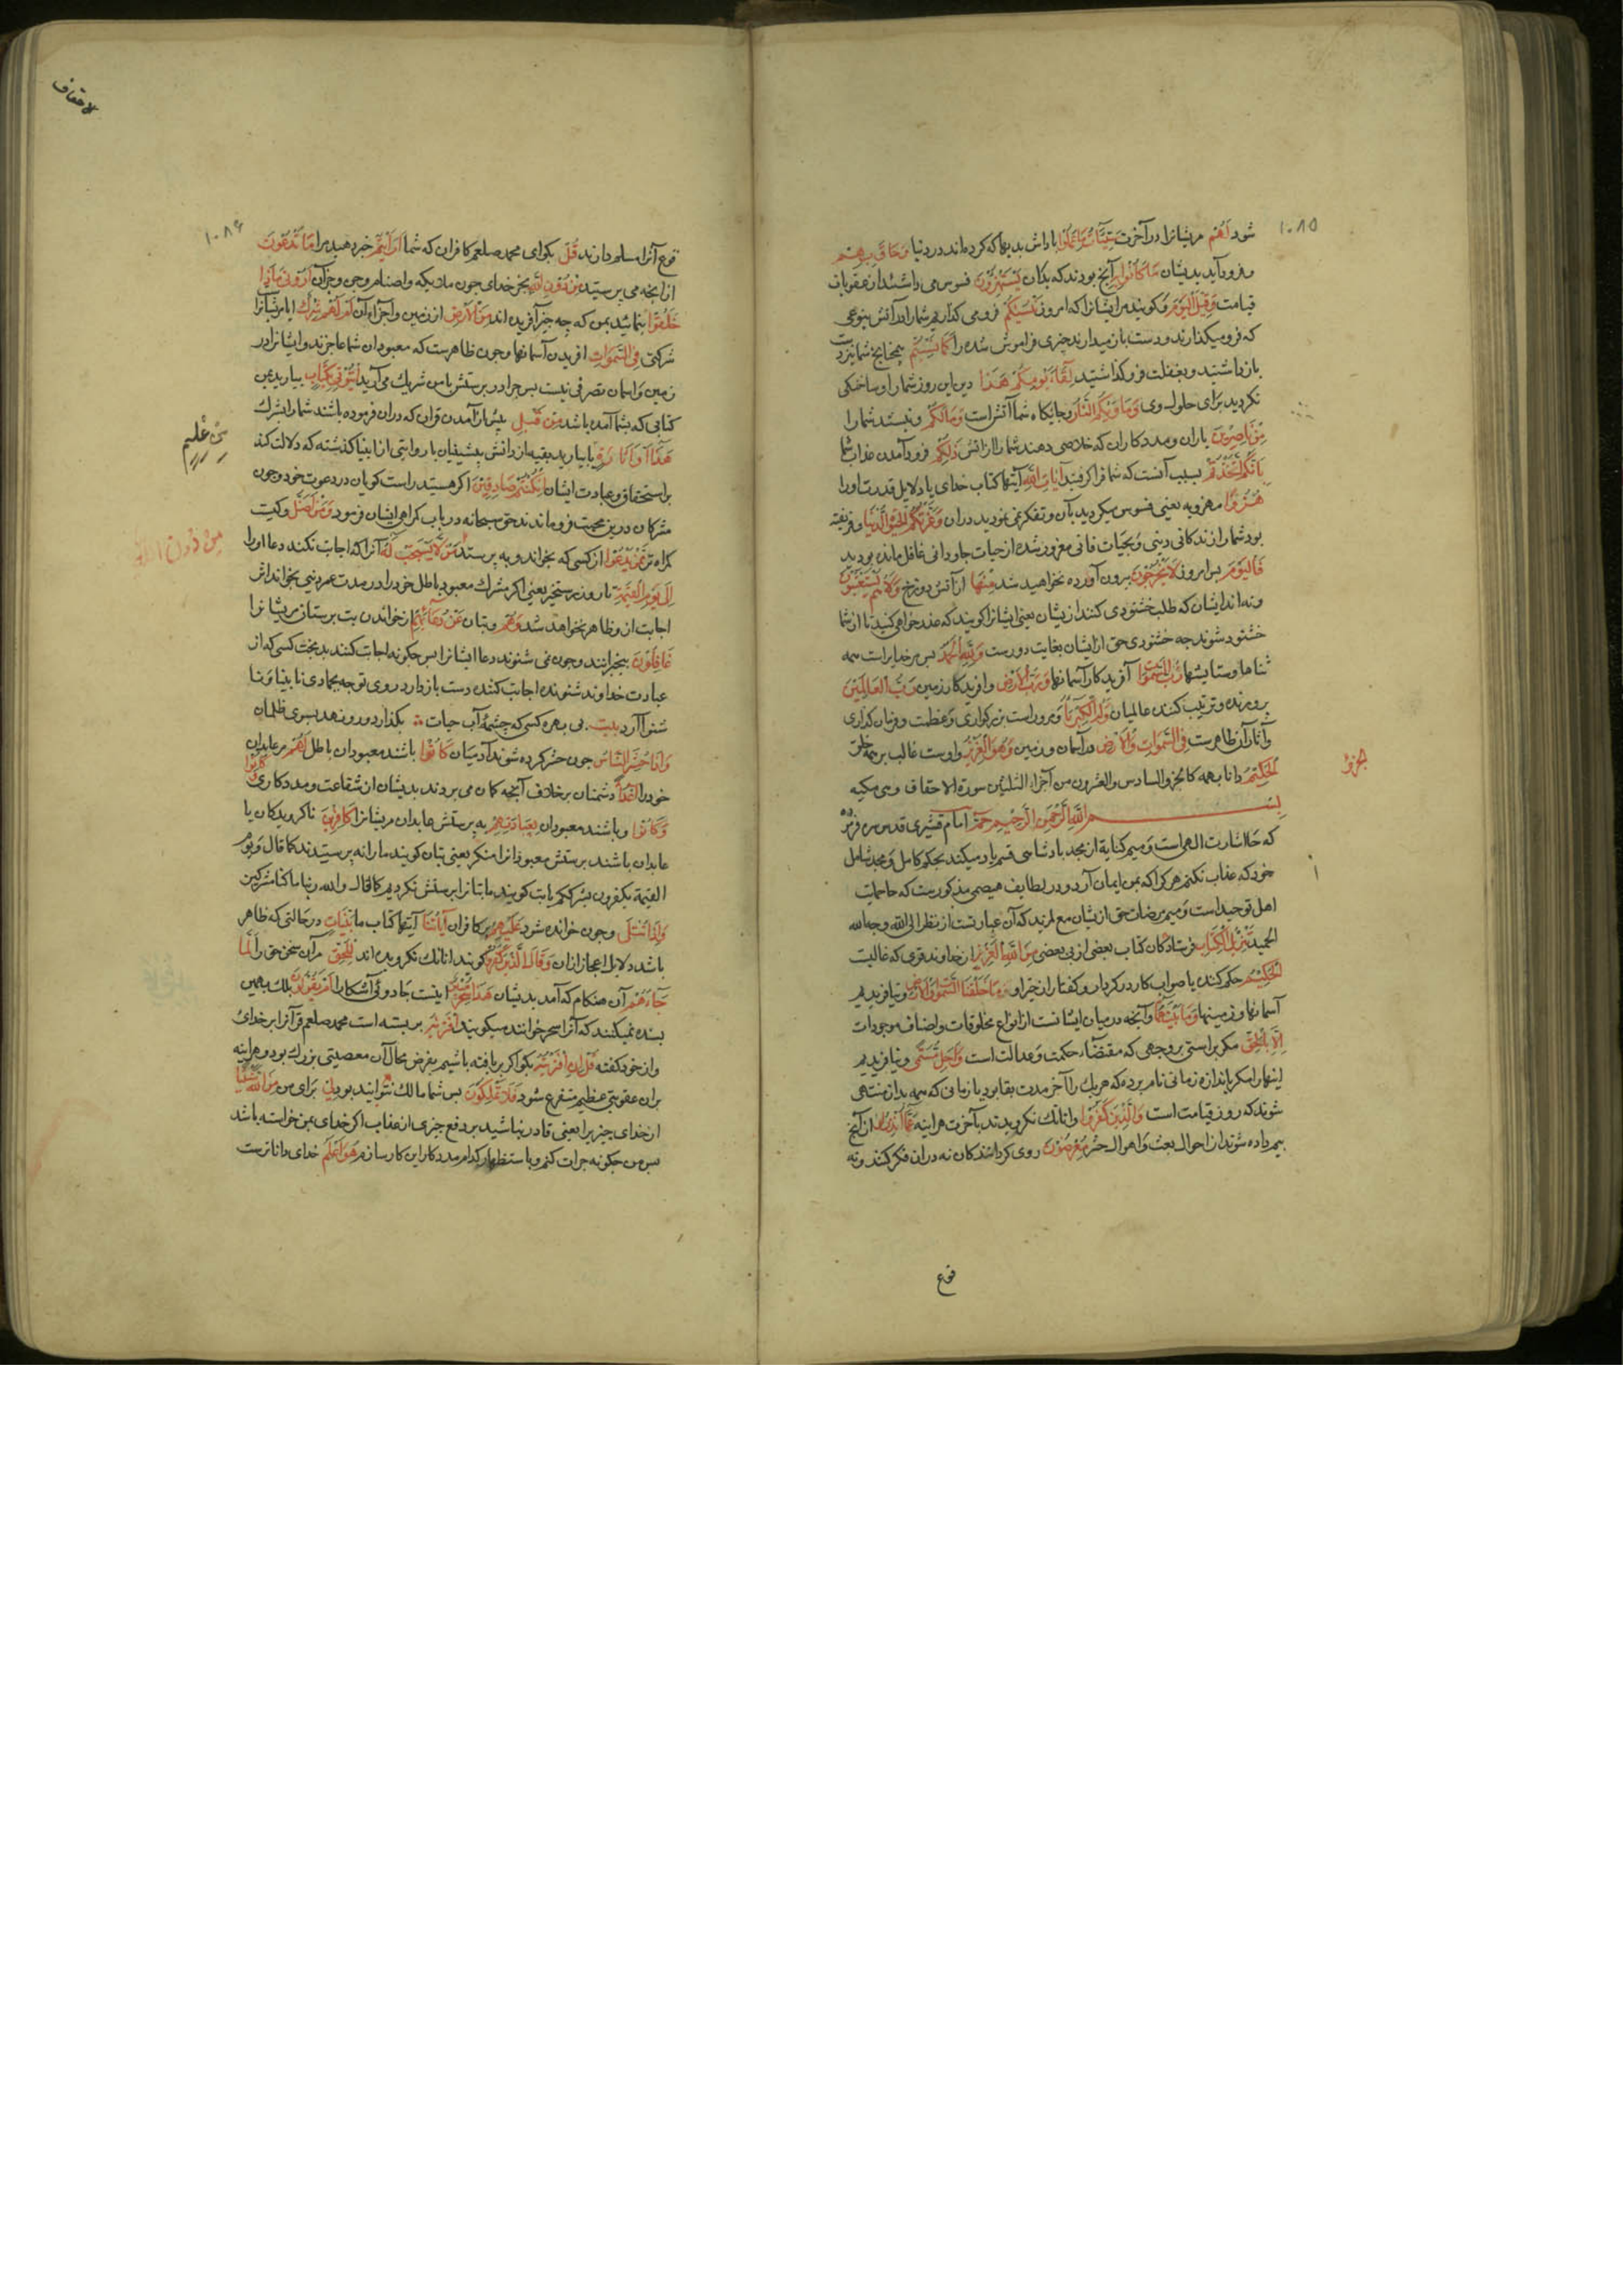 ۱۰۸۵
شود لَهُم مریشانرا در آخرت سَيِّئَاتُ مَا عَمِلُوا پاداش بدیها که کرده‌اند در دنیا وَحَاقَ بِهِم
و فرود آید بدیشان مَا كَانُوا بِهِ آنچ بودند که بدان يَسْتَهْزِؤُنَ فسوس می داشتند از عقوبات
قیامت وَقِيلَ الْيَوْمَ و کویند مر ایشانرا که امروز نَنْسَيكُم فرو می کذاریم شمارا در آتش بنوعی
که فرو میکذارند و دست باز میدارند چیزی فراموش شده را كَمَا نَسِيتُم همچنانچ شما نیز دست
باز داشتید و بغفلت فرو کذاشتید لِقَآءَ يَوْمِكُمْ هَذَا دیدن این روز شما را و ساختکی
نکردید برای حلول وی وَمَأوَيكُمُ النَّارُ و جایکاه شما آتش است وَمَالَكُم و نیستند شما را
مِنْ نَاصِرِينَ یاران و مددکاران که خلاصی دهند شما را از آتش ذَلِكُم فرود آمدن عذاب شما
بِأَنَّكُمُ اتَّخَذْتُم بسبب آنست که شما فرا کرفتید آيَاتِ اللَّهِ آیتهای کتاب خدای یا دلایل قدرت او را
هُزُوًا مهزو به یعنی فسوس میکردید بآن و تفکر نمی نمودید در آن وَغَرَّتْكُمُ الْحَيٰوةُ الدُّنْيَا و فریفته
بود شما را زندکانی دنیی و بحیات فانی مغرور شده از حیات جاودانی غافل مانده بودید
فَالْيَوْمَ پس امروز لَا يُخْرَجُونَ برون آورده نخواهید شد مِنْهَا از آتش دوزخ وَلَا هُمْ يُسْتَعْتَبُونَ
و نه اند ایشان که طلب خشنودی کنند ازیشان یعنی ایشانرا کویند که عذر خواهی کنید تا از شما
خشنود شوند چه خشنودی حق از ایشان بغایت دورست فَلِلَّهِ الْحَمْدُ پس مر خدایراست همه
ثناها و ستایشها رَبِّ السَّمٰوَاتِ آفریدکار آسمانها وَرَبِّ الْأَرْضِ و افریدکار زمین رَبِّ الْعَالَمِينَ
پرورنده و ترتیب کننده عالمیان وَلَهُ الْكِبْرِيَآءُ و مروراست بزرکواری و عظمت و فرمان کذاری
و آثار آن ظاهرست فِي السَّمٰوَاتِ وَالْأَرْضِ در آسمان و زمین وَهُوَ الْعَزِيزُ و اوست غالب بر همه خلق
الْحَكِيمُ دانا بهمه کا الجزو السادس والعشرون من آجزاء الثلثین سورة الاحقاف وهی مکیه
بسم اللَّهِ الرَّحْمٰنِ الرَّحِيمِ حم امام قشیری قدس سره فرموده
که حا اشارت الهی است و میم کنایة از مجد پادشاهی قسم یاد میکند بحکم کامل و مجد شامل
خود که عذاب نکنم هر کرا که بمن ایمان آرد و در لطایف هیصمی مذکورست که حا حمایت
اهل توحید است و میم مرضات حق ازیشان مع لمرند که آن عبارتست از نظر الی الله وجه الله
الحمید تَنْزِيلُ الْكِتَابِ فرستادکان کتاب بعضی از پی بعضی مِنَ اللَّهِ الْعَزِيزِ از خداوند قوی که غالبست
الْحَكِيمِ حکم کننده یا صواب کار در کردار و کفتار از خیر او مَا خَلَقْنَا السَّمٰوَاتِ وَالْأَرْضَ و نیافریدیم
آسمانها و زمینها وَمَا بَيْنَهُمَا و آنچه در میان ایشانست از انواع مخلوقات و اصناف موجودات
إِلَّا بِالْحَقِّ مکر براستی بر وجهی که مقتضاء حکمت و عدالت است وَأَجَلٍ مُسَمًّى و نیافریدیم
اینها را مکر باندازه زمانی نام برده که هر یک را آخر مدت بقا بود یا زمانی که همه بدان منتهی
شوند که روز قیامت است وَالَّذِينَ كَفَرُوا و انانک نکرویدند بآخرت هراینه عَمَّا أُنْذِرُوا از آنچ
بیم داده شوند از احوال بعث و اهوال حشر مُعْرِضُونَ روی کردانندکان نه در ان فکر کنند و نه
جزو
وقوع
لاحقاف
۱۰۸۶
وقوع آنرا مسلم دارند قُلْ بکو ای محمد صلعم کافرانرا که شما أَرَأَيْتُم خبر دهید مرا مَا تَدْعُونَ
از آنچه می پرستید مِنْ دُونِ اللَّهِ بجز خدای چون ملائکه و اصنام و جن و جز آن أَرُونِي مَاذَا
خَلَقُوا بنمائید بمن که چه چیز آفریده اند مِنَ الْأَرْضِ از زمین و اجزاء آن أَمْ لَهُمْ شِرْكٌ ایا مریشانرا
شرکتی فِي السَّمٰوَاتِ افریدن آسمانها و چون ظاهرست که معبودان شما عاجزند و ایشانرا در
زمین و آسمان تصرفی نیست پس چرا در پرستش با من شریک می آرید ائْتُونِي بِكِتَابٍ بیارید بمن
کتابی که بشما آمده باشد مِنْ قَبْلِ پیش از آمدن قران که دران فرموده باشند شما را بشرک
هَذَا أَوْ أَثَارَةٍ یا بیارید بقیه از دانش پیشینیان یا روایتی از انبیا کذشته که دلالت کند
بر استحقاق و عبادت ایشان إِنْ كُنْتُمْ صَادِقِينَ اکر هستید راست کویان در دعوت خود و چون
مشرکان درین محبت فروماندند حق سبحانه در باب کمراهی ایشان فرمود وَمَنْ أَضَلُّ و کیست
کمراه تر مِمَّنْ يَدْعُوا از کسی که بخواند و به پرستد مَنْ لَا يَسْتَجِيبُ لَهُ آنرا که اجابت نکند دعا او را
إِلٰى يَوْمِ الْقِيٰمَةِ تا روز رستخیز یعنی اکر مشرک معبود باطل خود را در مدت عمر دنیی بخواند اثر
اجابت از و ظاهر نخواهد شد وَهُمْ و بتان عَنْ دُعَآئِهِمْ از خواندن بت پرستان مریشانرا
غَافِلُونَ بیخبرانند و چون نمی شنوند دعا ایشانرا پس چکونه اجابت کنند بدبخت کسی که از
عبادت خداوند شنونده اجابت کننده دست باز دارد و روی توجه بجمادی نابینا و نا
شنوا آرد بیت بی بهره کسی که چشمه آب حیات بکذارد و رو نهد بسوی ظلمات
وَإِذَا حُشِرَ النَّاسُ چون حشر کرده شوند آدمیان كَانُوا باشند معبودان باطل لَهُمْ مر عابدان
خود را أَعْدَآءً دشمنان بر خلاف آنچه کمان می بردند بدیشان از شفاعت و مددکاری
وَكَانُوا و باشند معبودان بِعِبَادَتِهِمْ به پرستش عابدان مریشانرا كَافِرِينَ ناکرویدکان یا
عابدان باشند پرستش معبودانرا منکر یعنی بتان کویند ما را نه پرستیدند کما قال و یوم
القیمة یکفرون بشرککم یا بت کویند ما بتانرا پرستش نکردیم کما قال والله ربنا ما کنا مشرکین
وَإِذَا تُتْلٰى و چون خوانده شود عَلَيْهِمْ بر کافران آيَاتُنَا آیتهای کتاب ما بَيِّنَاتٍ در حالتی که ظاهر
باشد دلایل اعجاز ازان وَقَالَ الَّذِينَ كَفَرُوا کویند انانک نکرویده اند لِلْحَقِّ مر آن سخن حق را لَمَّا
جَآءَهُمْ آن هنکام که آمد بدیشان هَذَا سِحْرٌ مُبِينٌ اینست جادوئی آشکارا أَمْ يَقُولُونَ بلک بهمین
بسنده نمیکنند که آنرا سحر خوانند میکویند افْتَرٰيهُ بر بسته است محمد صلعم قرآنرا بر خدای
و از خود کفته قُلْ إِنِ افْتَرَيْتُهُ بکو اکر بر بافته باشیم بفرض محال آن معصیتی بزرک بود و هراینه
بران عقوبتی عظیم متفرع شود فَلَا تَمْلِكُونَ پس شما مالک نتوانید بود لِي برای من مِنَ اللَّهِ شَيْئًا
از خدای چیزیرا یعنی قادر نباشید بر دفع چیزی از عذاب اکر خدای بمن خواسته باشد
پس من چکونه جرات کنم و باستظهار کدام مددکار این کار سازم هُوَ أَعْلَمُ خدای داناترست
مِنْ عِلْمٍ